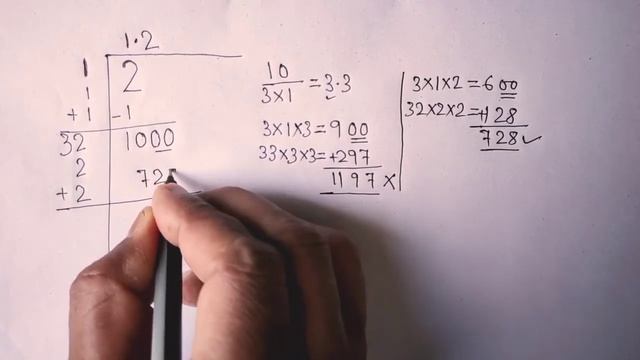 1.2
1 2
1
+1 -1
32 1000
2 72
+2
10
3×1 =3.3
3×1×3=900
33×3×3=+297
1197×
3×1×2=600
32×2×2=+128
728✓